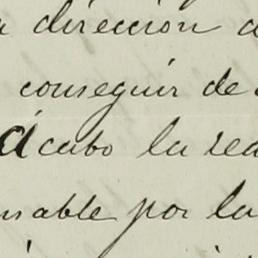 dirección
conseguir de
á cabo la rea
nsable por la